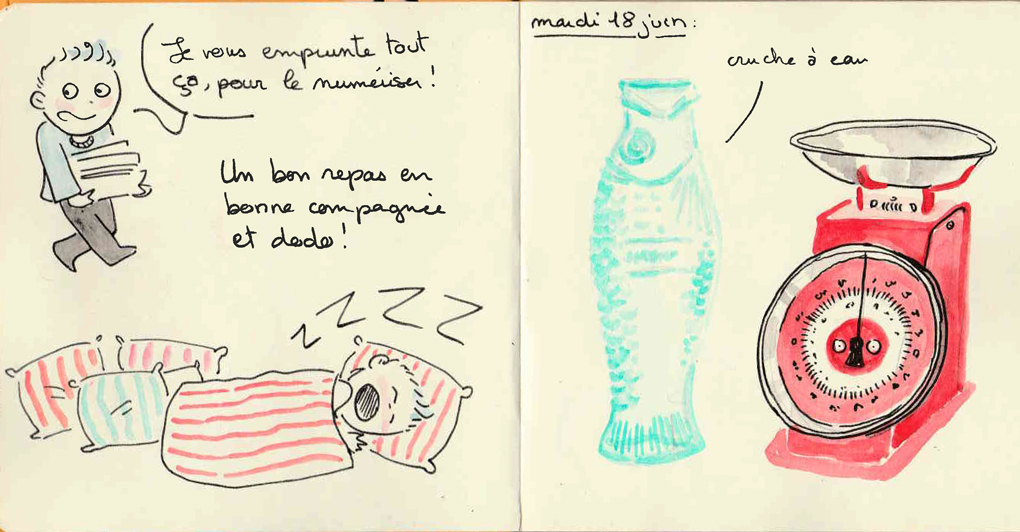 Je vous emprunte tout
ça, pour le numériser !
Un bon repas en
bonne compagnie
et dodo !
zzzz
mardi 18 juin :
cruche à eau